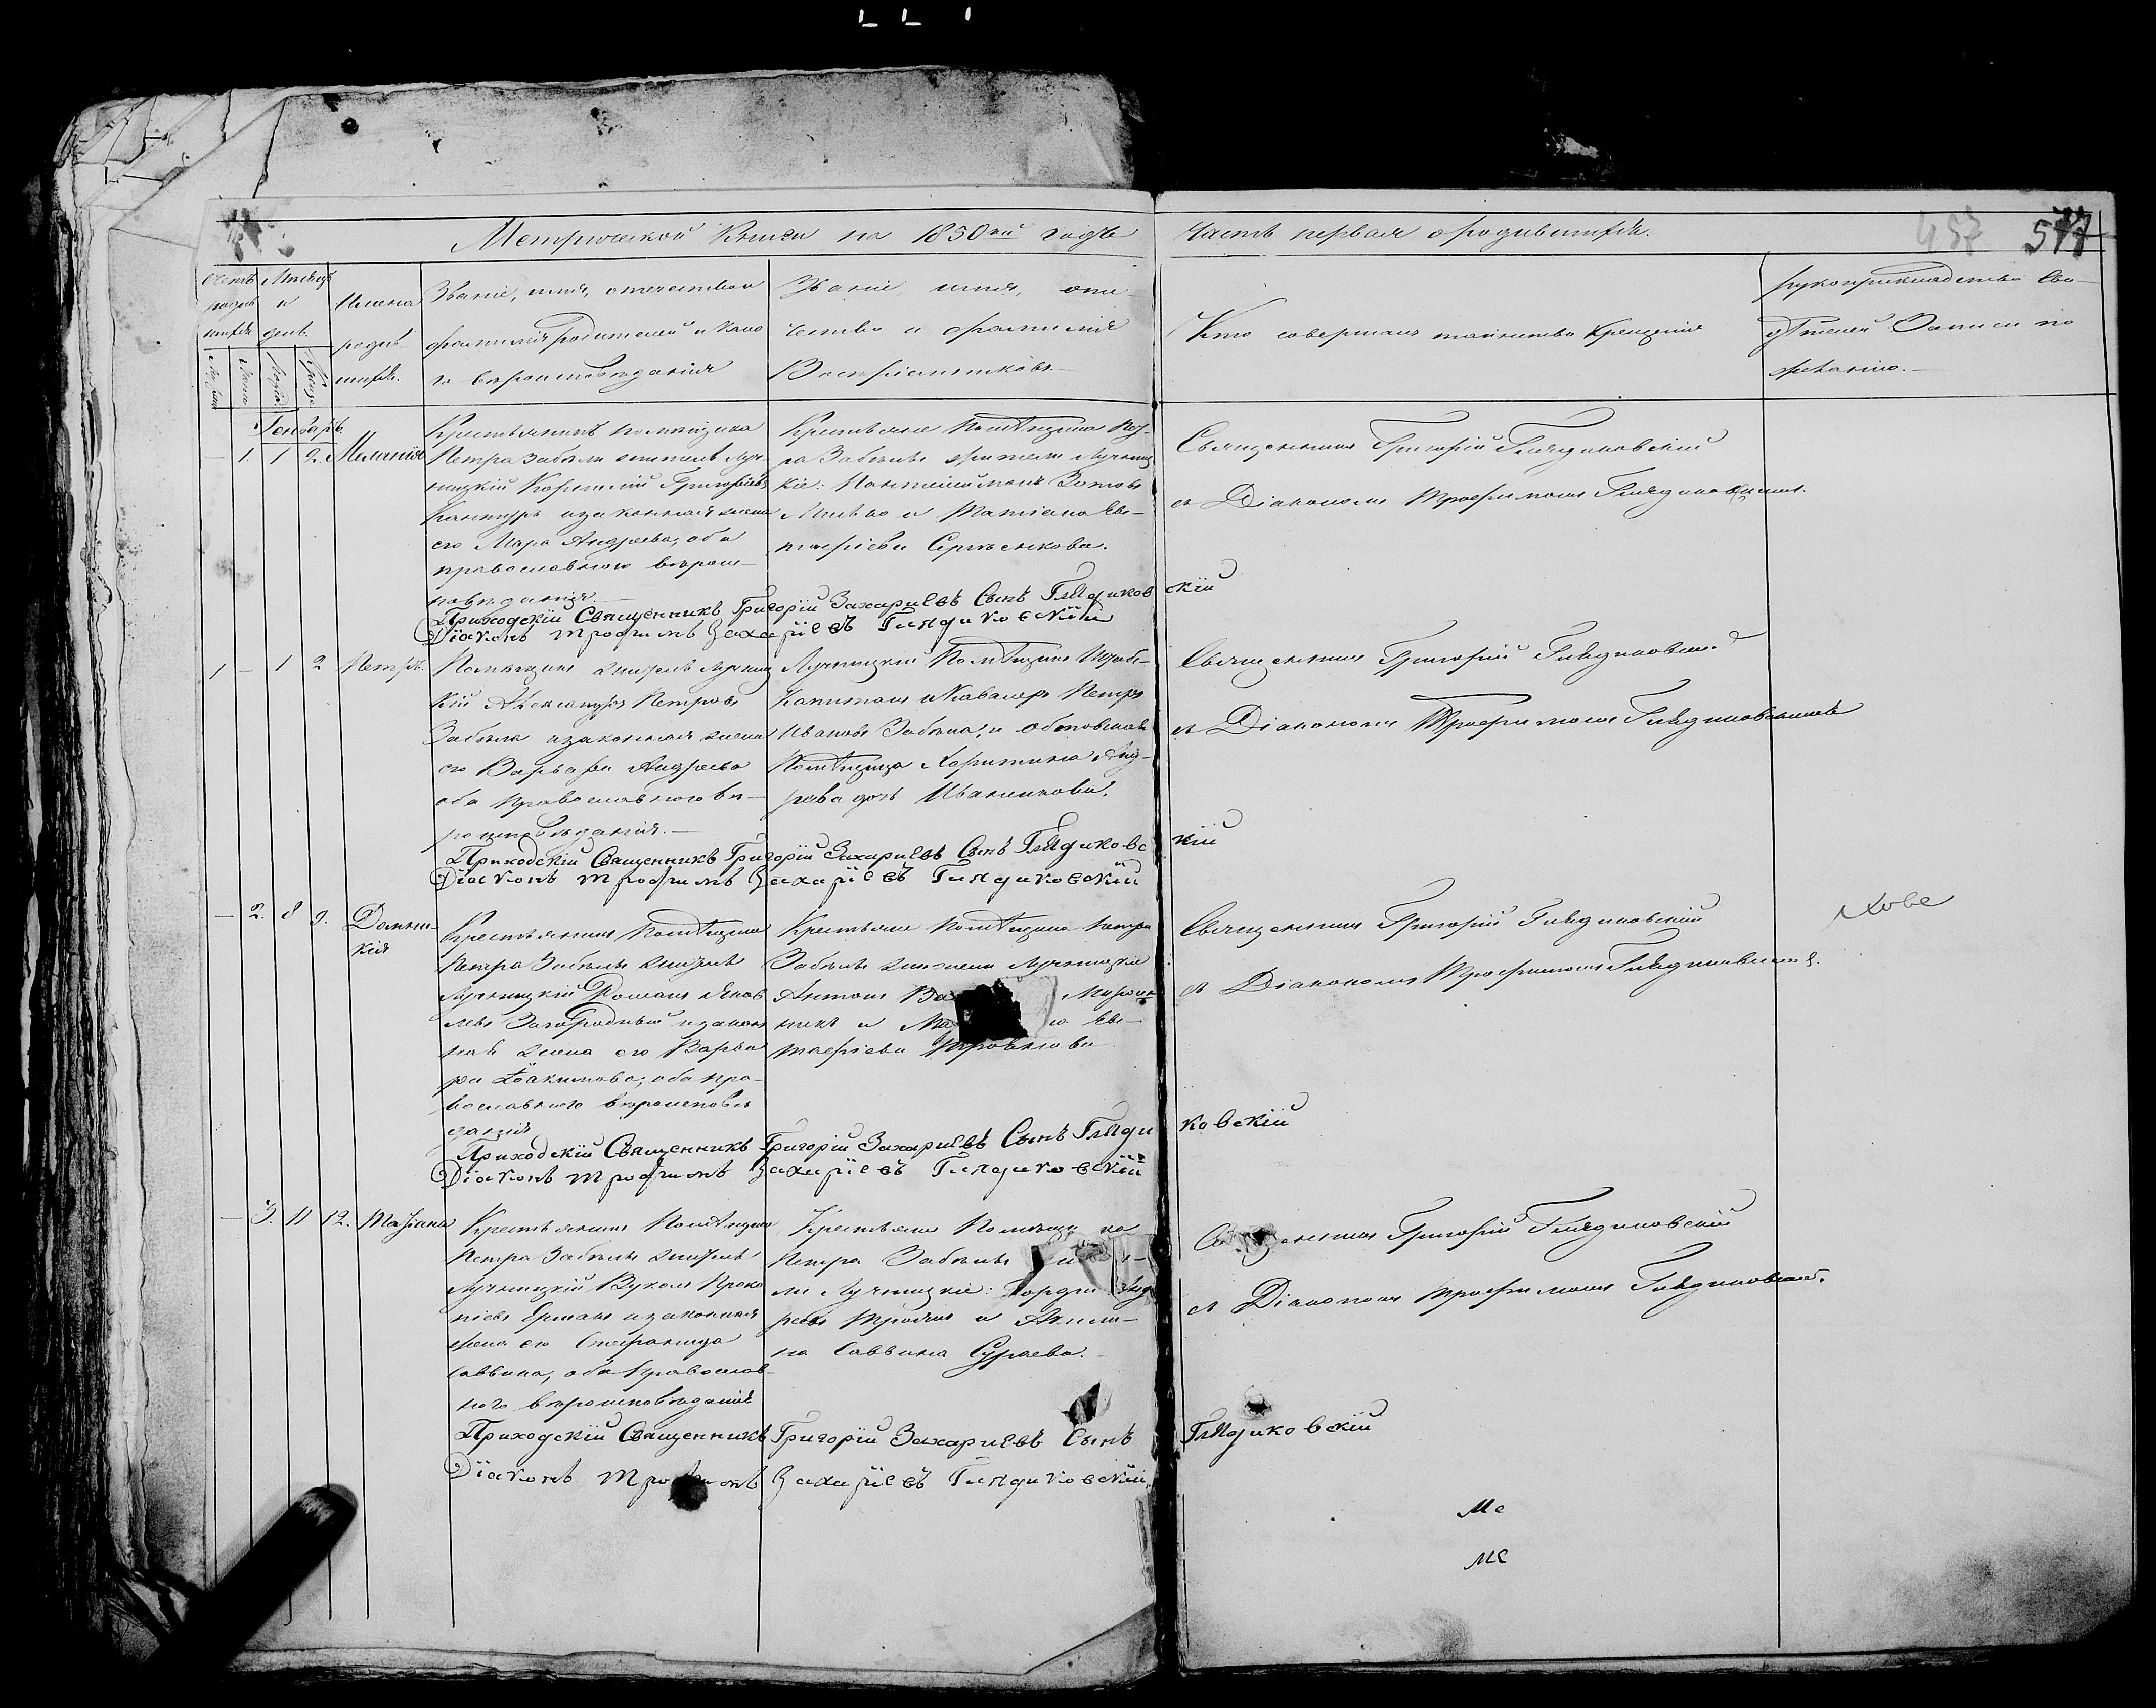 Метрической Книги на 1850ый годъ
Часть первая о родившихся.
457
577
Счетъ родив шихся
Мѣсяцъ и день.
Имена родив шихся.
Званіе, имя, отчество и
фамилія родителей и како
го вѣроисповѣданія
Званіе, имя, отче-
ство и фамилія
Воспріемниковъ.
Кто совершалъ таинство крещенія
Рукоприкладство сви-
дѣтелей Записи по
желанію.
Генварь.
— 1. 1 2. Меланія
Крестьянинъ помѣщика
Петра Забѣлы житель Луч-
ницкій Корнилій Григорьевъ
и законная жена
его Мара Андреева, оба
православнаго вѣроис-
повѣданія.
Крестьяне Помѣщика Пет-
ра Забѣлы жители Лучниц
кіе: Пантелеймонъ Зотовъ
и Татіана Ев-
таѳіева
Священникъ Григорій Глядиковскій
съ Діакономъ Трофимомъ Глядиковскимъ.
Приходскій Священникъ Григорій Захаріевъ Сынъ Глядиковскій
Діаконъ Трофимъ Захаріевъ Глядиковскій
1 — 1 2 Петръ.
Помѣщикъ житель Лучниц
кій Александръ Петровъ
Забѣла и законная жена
его Варвара Андреева
оба православнаго вѣ-
роисповѣданія.
Лучницкій Помѣщикъ Штабс-
Капитанъ и Кавалеръ Петръ
Ивановъ Забѣла, и
Помѣщица Харитина Анд-
реева дочь
Священникъ Григорій Глядиковскій
съ Діакономъ Трофимомъ Глядиковскимъ
Приходскій Священникъ Григорій Захаріевъ Сынъ Глядиковскій
Діаконъ Трофимъ Захаріевъ Глядиковскій
— 2. 8 9. Домни-
кія
Крестьянинъ Помѣщика
Петра Забѣлы житель
Лучницкій Романъ Яков
левъ и закон
ная жена его Варва
ра Іоакимова, оба пра-
вославнаго вѣроисповѣ
данія
Крестьяне Помѣщика Петра
Забѣлы жители Лучницкіе
Антонъ Ва
и Ма Ев-
таѳіева
Священникъ Григорій Глядиковскій
съ Діакономъ Трофимомъ Глядиковскимъ.
Приходскій Священникъ Григорій Захаріевъ Сынъ Глядиковскій
Діаконъ Трофимъ Захаріевъ Глядиковскій
— 3. 11 12. Татіана
Крестьянинъ Помѣщика
Петра Забѣлы житель
Лучницкій Вуколъ Проко
піевъ и законная
жена его Стефанида
Саввина, оба православ-
наго вѣроисповѣданія
Крестьяне Помѣщи ка
Петра Забѣлы
ли Лучницкіе: Гордій Анд
реевъ и Акили-
на Саввина Сураева.
Священникъ Григорій Глядиковскій
съ Діакономъ Трофимомъ Глядиковскимъ.
Приходскій Священникъ Григорій Захаріевъ Сынъ Глядиковскій
Діаконъ Трофимъ Захаріевъ Глядиковскій